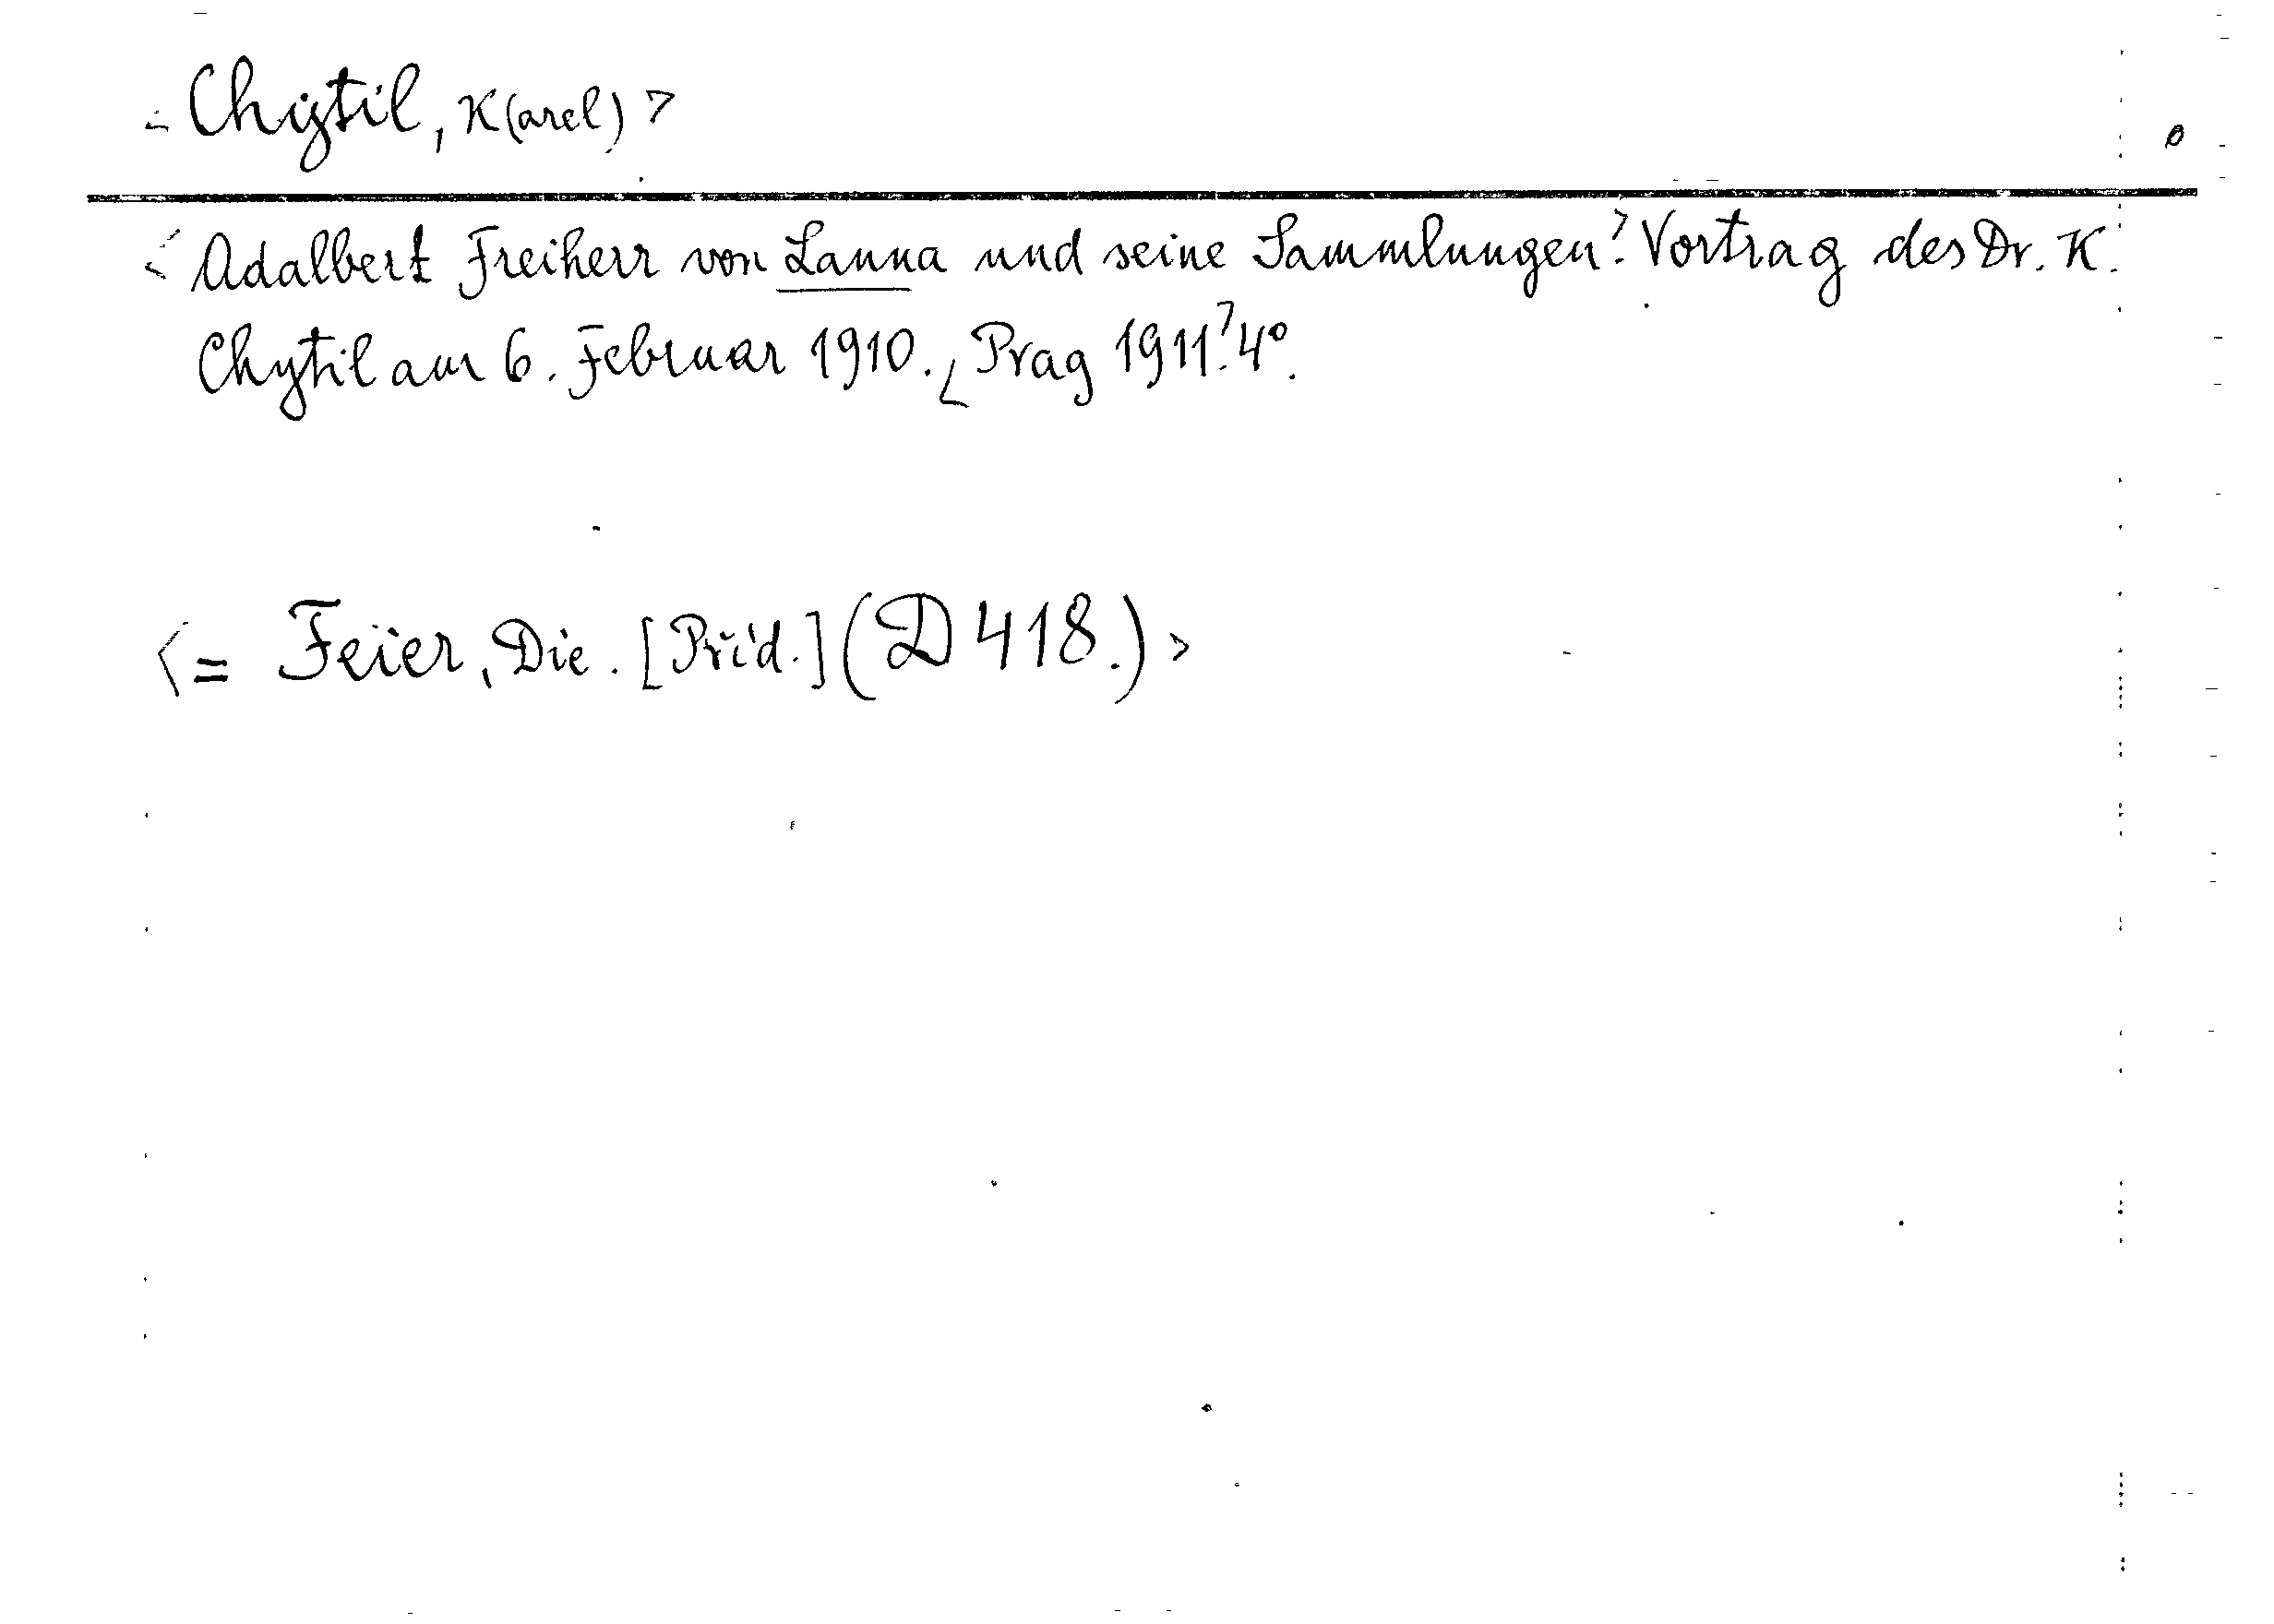 <Chytil, K(arel)>
<Adalbert Freiherr von Lanna und seine Sammlungen.> Vortrag des Dr. K.
Chytil am 6. Februar 1910. <Prag 1911.> 4°.
<= Feier, Die. [Příd.] (D 418.)>